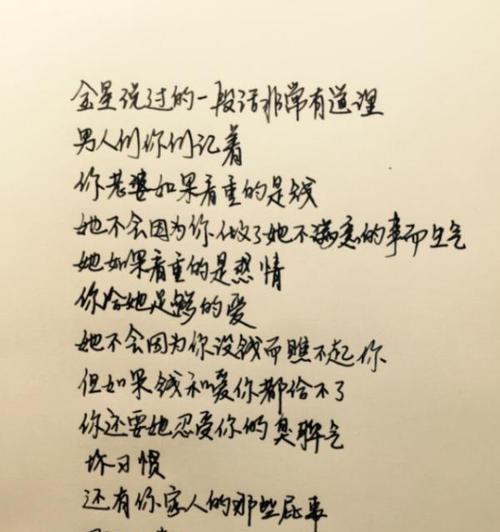 金星说过的一段话非常有道理
男人们你们记着
你老婆如果看重的是钱
她不会因为你做了她不满意的事而生气
她如果看重的是感情
你给她足够的爱
她不会因为你没钱而瞧不起你
但如果钱和爱你都给不了
你还要她忍受你的臭脾气
坏习惯
还有你家人的那些屁事